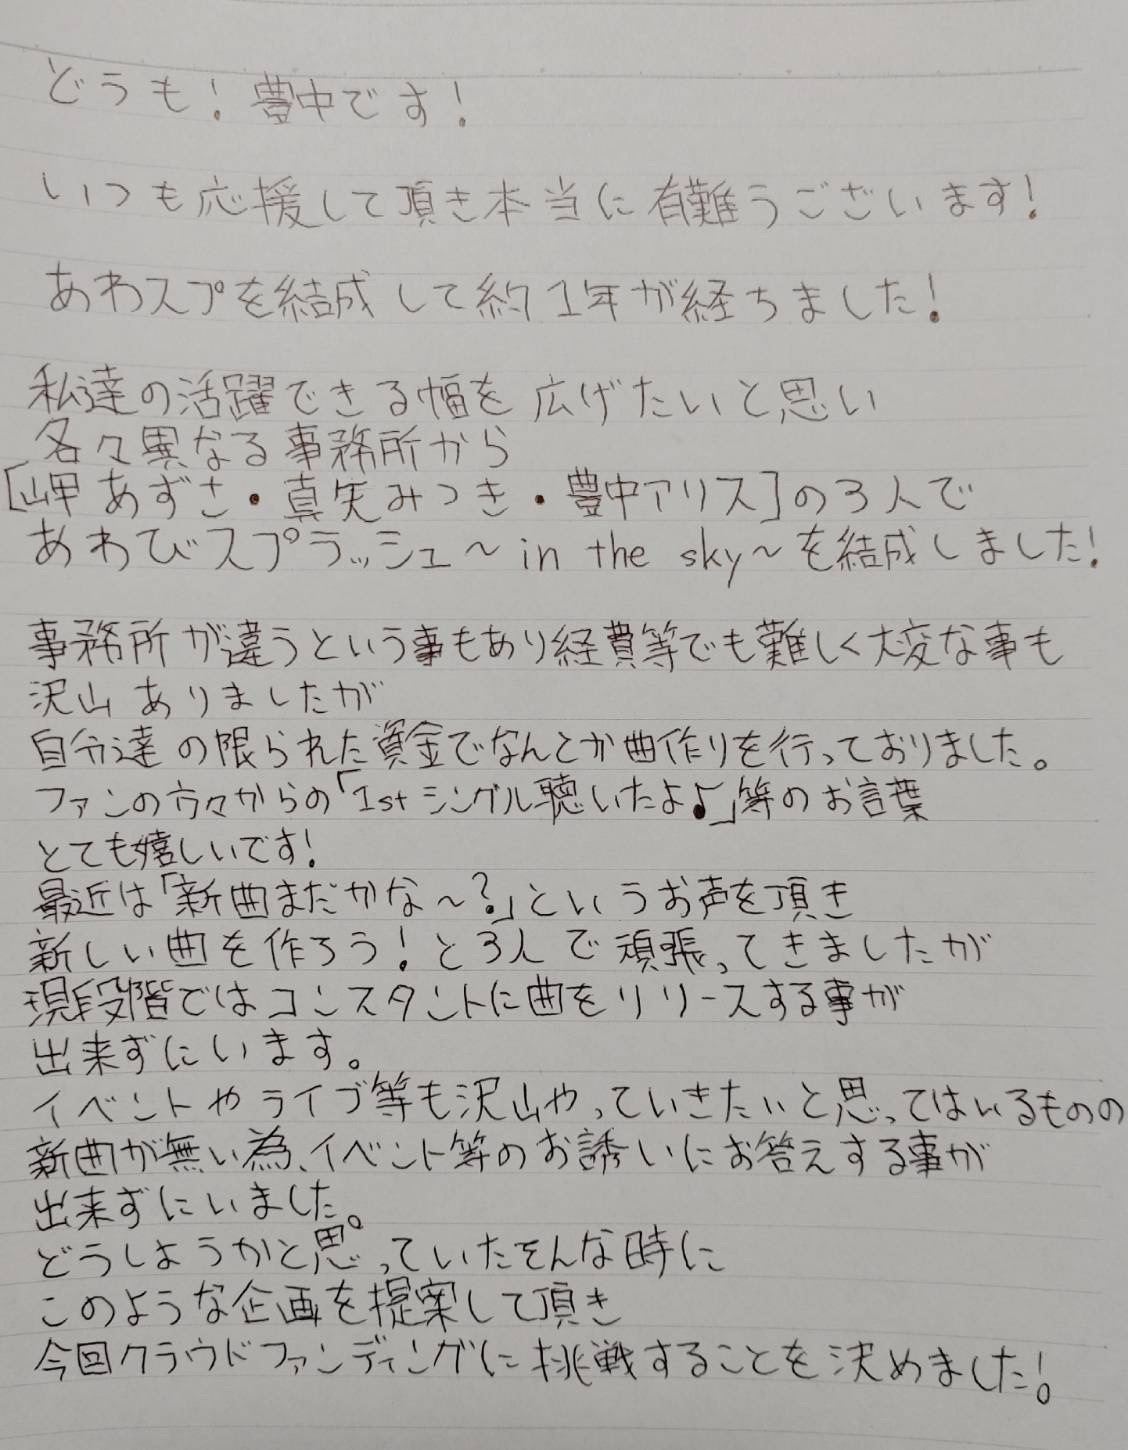 どうも！豊中です！
いつも応援して頂き本当に有難うございます！
あわスプを結成して約1年が経ちました！
私達の活躍できる幅を広げたいと思い
各々異なる事務所から
［岬あずさ・真矢みつき・豊中アリス］の3人で
あわびスプラッシュ～in the sky～を結成しました！
事務所が違うという事もあり経費等でも難しく大変な事も
沢山ありましたが
自分達の限られた資金でなんとか曲作りを行っておりました。
ファンの方々からの「1stシングル聴いたよ♪」等のお言葉
とても嬉しいです！
最近は「新曲まだかな～？」というお声を頂き
新しい曲を作ろう！と3人で頑張ってきましたが
現段階ではコンスタントに曲をリリースする事が
出来ずにいます。
イベントやライブ等も沢山やっていきたいと思ってはいるものの
新曲が無い為、イベント等のお誘いにお答えする事が
出来ずにいました。
どうしようかと思っていたそんな時に
このような企画を提案して頂き
今回クラウドファンディングに挑戦することを決めました！